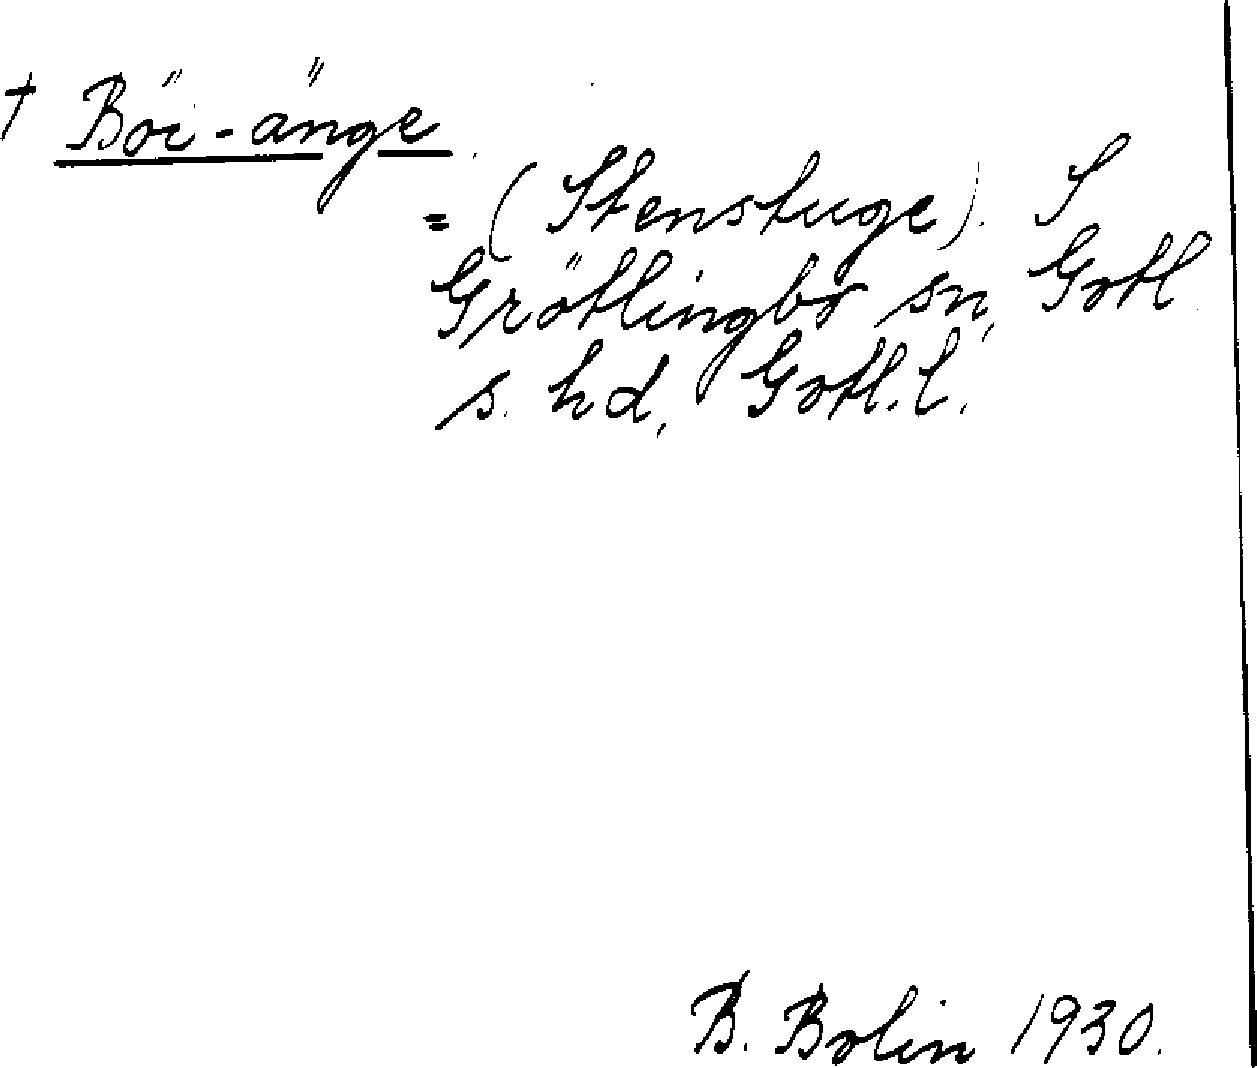 † Böi-änge
= (Stenstuge). S
Grötlingbo sn, Gotl
s. hd, Gotl. l.
B. Bolin 1930.